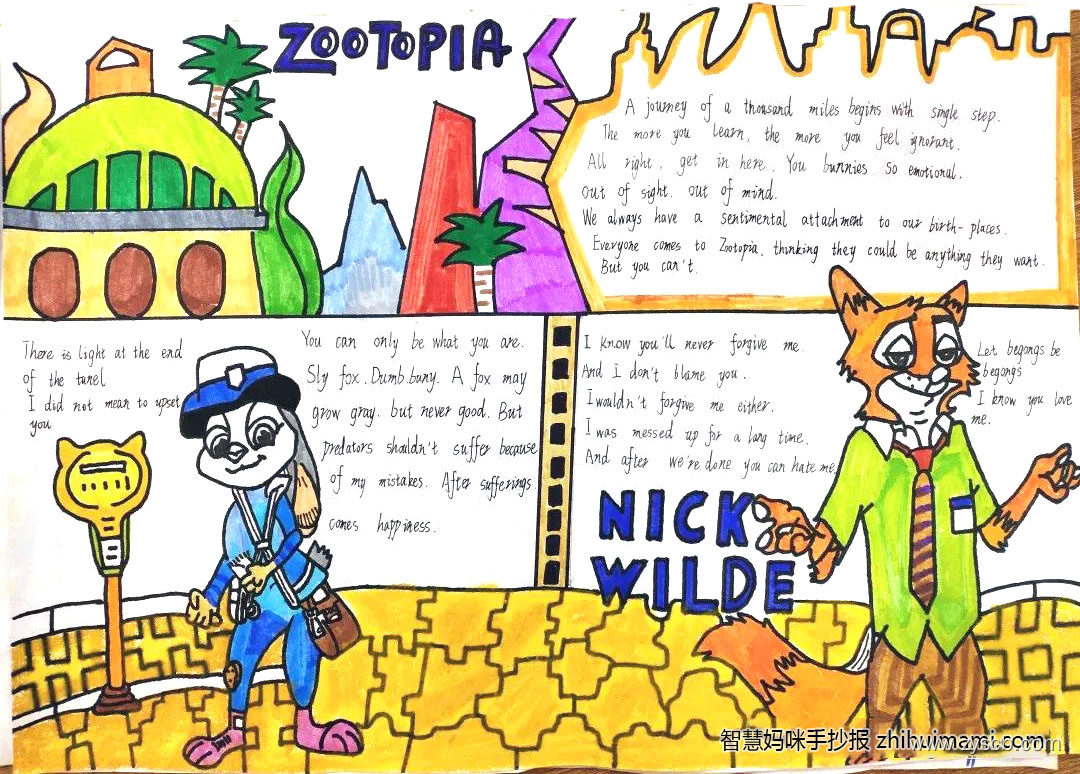 ZOOTOPIA
A journey of a thousand miles begins with single step.
The more you learn, the more you feel ignorant.
All right, get in here. You bunnies. So emotional.
Out of sight. out of mind.
We always have a sentimental attachment to our birth-places.
Everyone comes to Zootopia, thinking they could be anything they want.
But you can't.
There is light at the end
of the tunel
I did not mean to upset
you
You can only be what you are.
Sly fox. Dumb buny. A fox may
grow gray. but never good. But
predators shouldn't suffer because
of my mistakes. After sufferings
comes happiness.
I know you'll never forgive me.
And I don't blame you.
I wouldn't forgive me either.
I was messed up for a long time.
And after we're done you can hate me.
NICK
WILDE
Let begongs be
begongs
I know you love
me.
智慧妈咪手抄报 zhihuimami.com